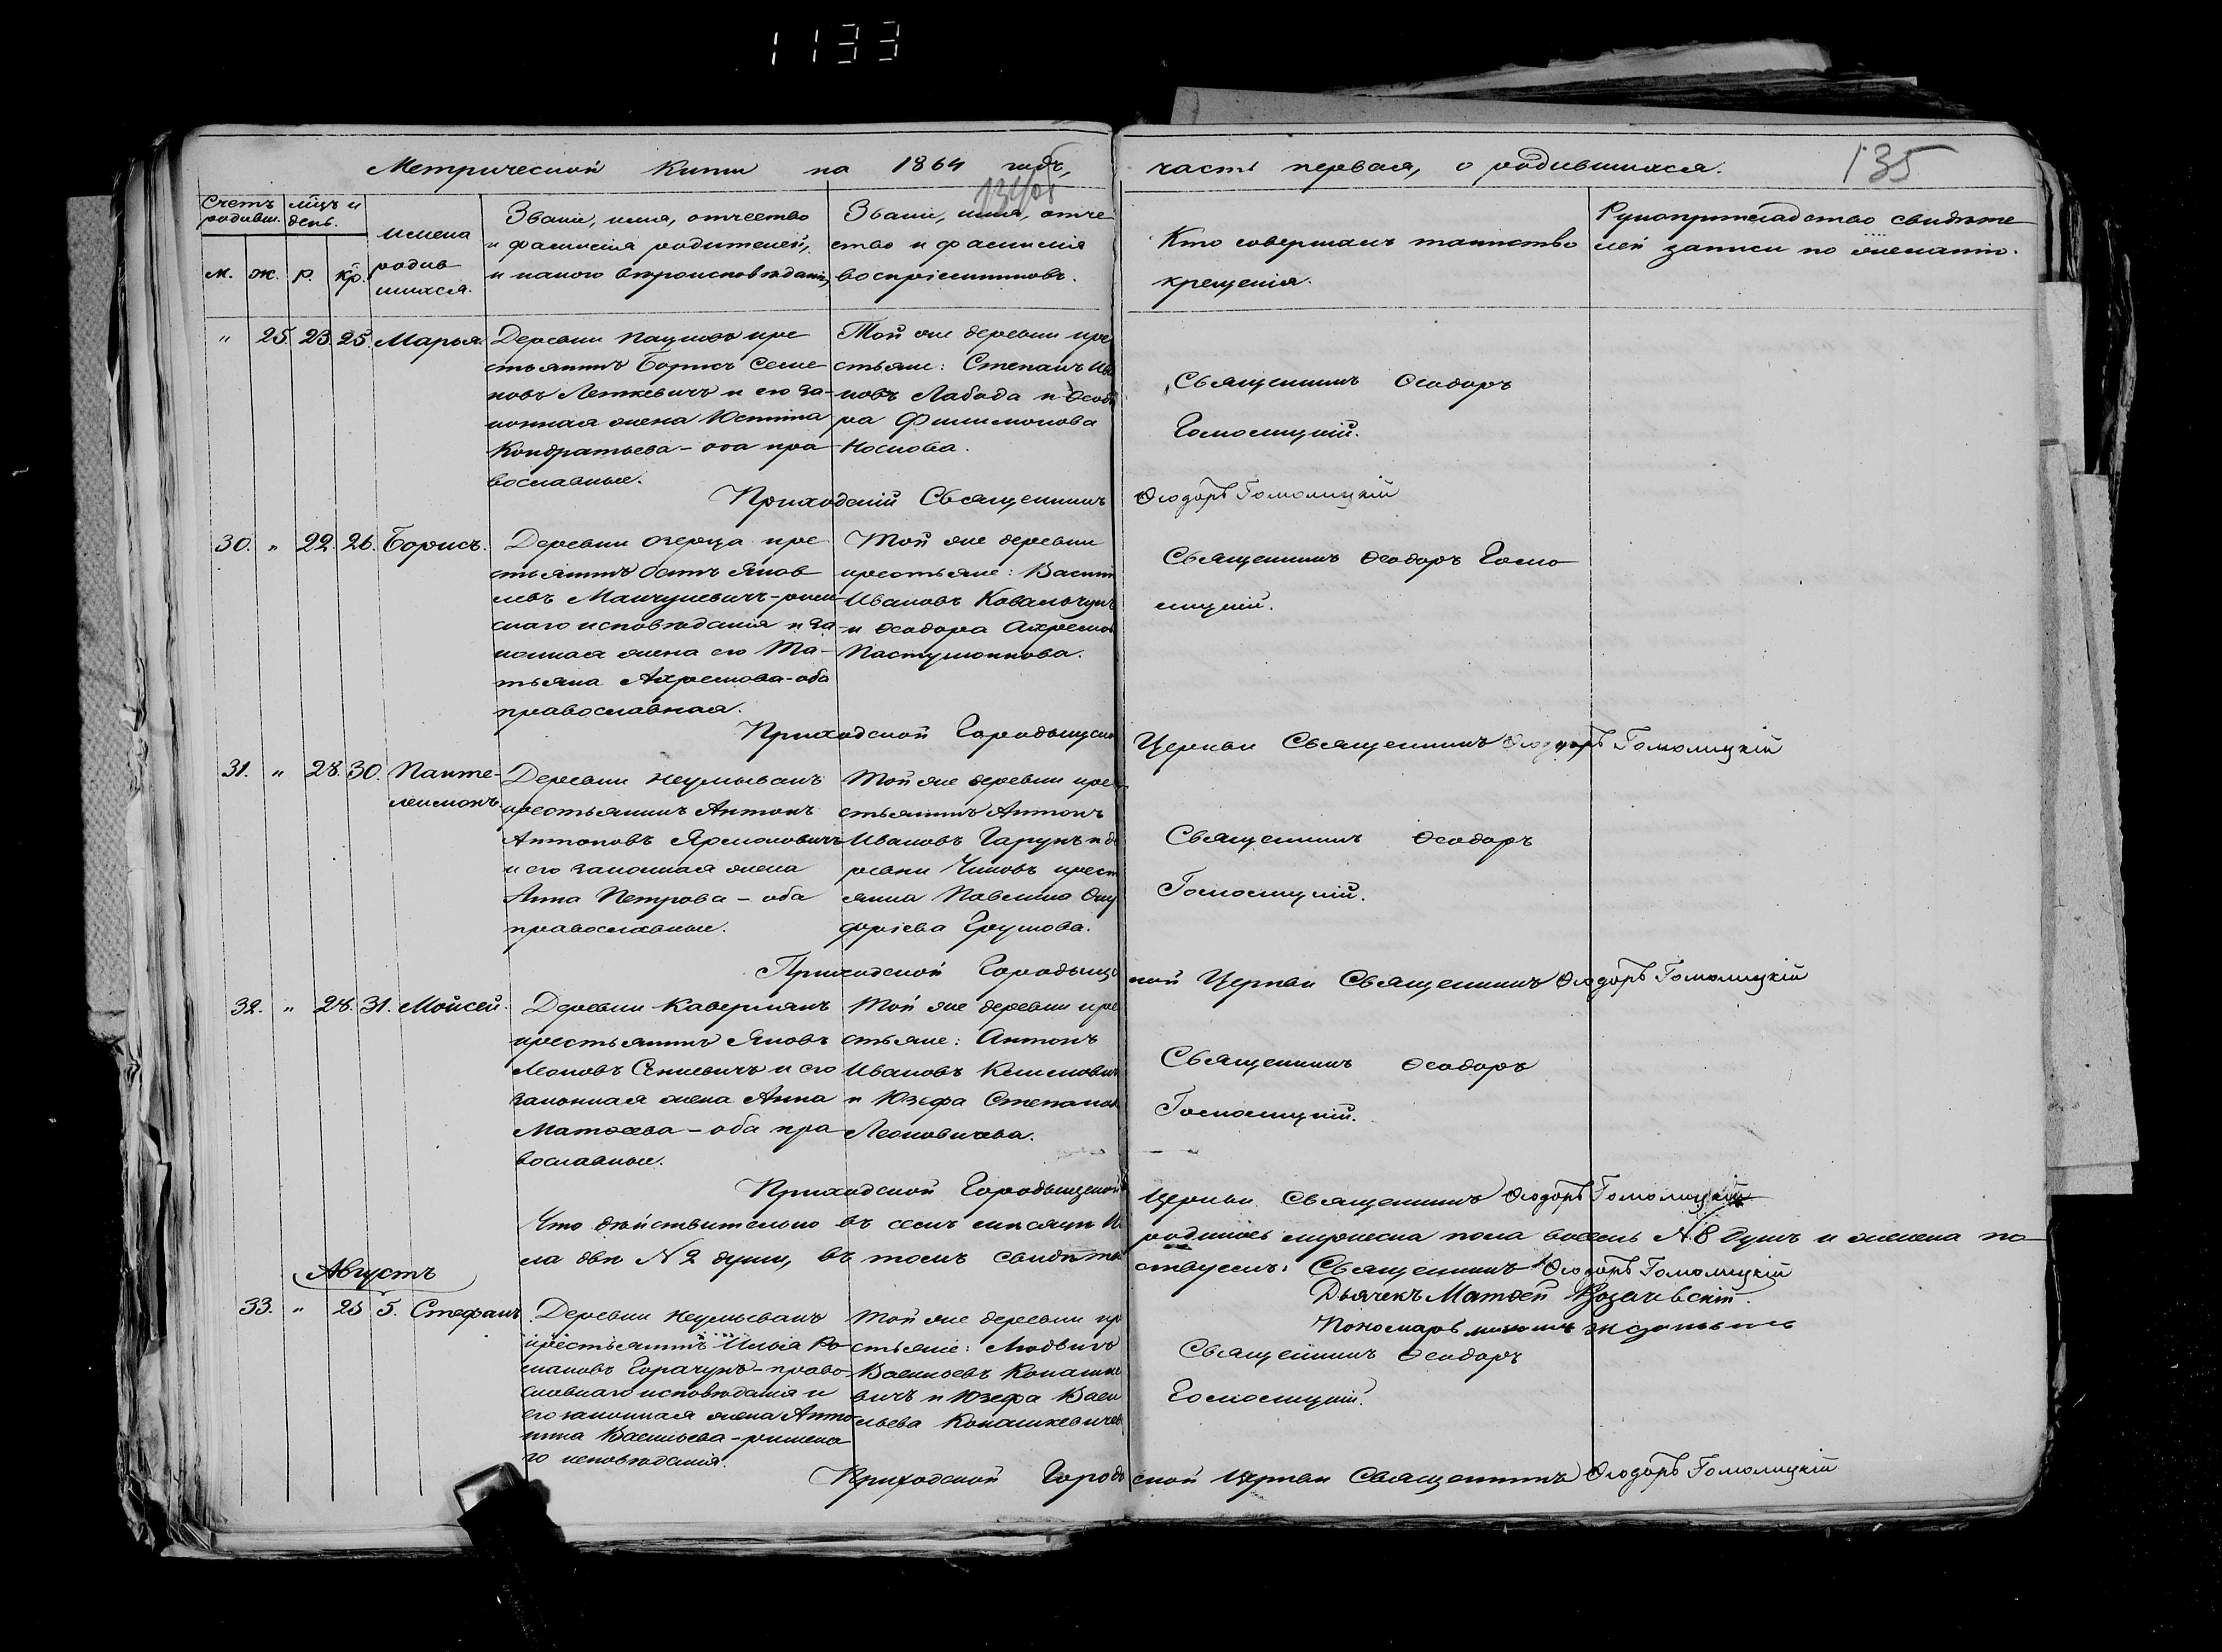 1133
Метрической Книги на 1864 годъ, часть первая, о родившихся. 135
Счетъ родивш.
м. ж.
мѣсяцъ и день.
р. кр.
имена родившихся.
Званіе, имя, отчество
и фамилія родителей,
и какого вѣроисповѣданія
Званіе, имя, отче
ство и фамилія
воспріемниковъ.
Кто совершалъ таинство
крещенія.
Рукоприкладство свидѣте
лей записи по желанію.
" 25. 23. 25. Марья.
Деревни Пацковъ кре
стьянинъ Борисъ Семе
новъ Леткевичъ и его за-
конная жена Юстина
Кондратьева - оба пра
вославные.
Той же деревни кре
стьяне: Степанъ Ива
новъ Лабода и Ѳеодо
ра Филимонова
Носкова.
Священникъ Ѳеодоръ
Гомолицкій.
Приходскій Священникъ Ѳеодоръ Гомолицкій
30. " 22. 26. Борисъ.
Деревни Озерца кре
стьянинъ Янов
левъ Манчукевичъ - рим
скаго исповѣданія и за
конная жена его Та-
тьяна Ахремова - оба
православная.
Той же деревни
крестьяне: Васили
Ивановъ Ковальчукъ
и Ѳеодора Ахремов
Пастушонкова.
Священникъ Ѳеодоръ Гомо
лицкій.
Приходской Городыщской Церкви Священникъ Ѳеодоръ Гомолицкій
31. " 28. 30. Панте-
леимонъ.
Деревни Неумывакъ
крестьянинъ Антонъ
Антоновъ Ярмоловичъ
и его законная жена
Анна Петрова - оба
православные.
Той же деревни кре
стьянинъ Антонъ
Ивановъ Гарунъ и де
ревни Чиковъ крест
янка Павлина Ону
фріева Грушова.
Священникъ Ѳеодоръ
Гомолицкій.
Приходской Городыщской Церкви Священникъ Ѳеодоръ Гомолицкій
32. " 28. 31. Мойсей.
Деревни Кавермякъ
крестьянинъ Яковъ
Леоновъ Сѣнкевичъ и его
законная жена Анна
Матѳеева - оба пра
вославные.
Той же деревни кре
стьяне: Антонъ
Ивановъ Климович
и Юзефа Степанов
Леоновичева.
Священникъ Ѳеодоръ
Гомолицкій.
Приходской Городыщской Церкви Священникъ Ѳеодоръ Гомолицкій
Что дѣйствительно въ семъ мѣсяцѣ родилось мужеска пола восемь №8 душъ и женска по
ла двѣ №2 души, въ томъ свидѣтельствуемъ: Священникъ Ѳеодоръ Гомолицкій
Дьячекъ Матѳей
Пономарь
Августъ
33. " 25 5. Стефанъ.
Деревни Неумывакъ
крестьянинъ Илья Ро
мановъ Горачукъ - право
славнаго исповѣданія и
его законная жена Анто
нина Васильева - римска
го исповѣданія.
Той же деревни кр
стьяне: Людвигъ
Васильевъ Конашке
вичъ и Юзефа Васи
льева Конашкевичев
Священникъ Ѳеодоръ
Гомолицкій.
Приходской Городыщской Церкви Священникъ Ѳеодоръ Гомолицкій